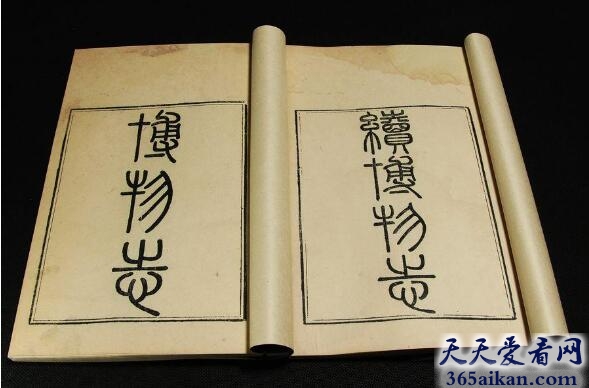 博物志
續博物志
天天爱看网
365aikan.com